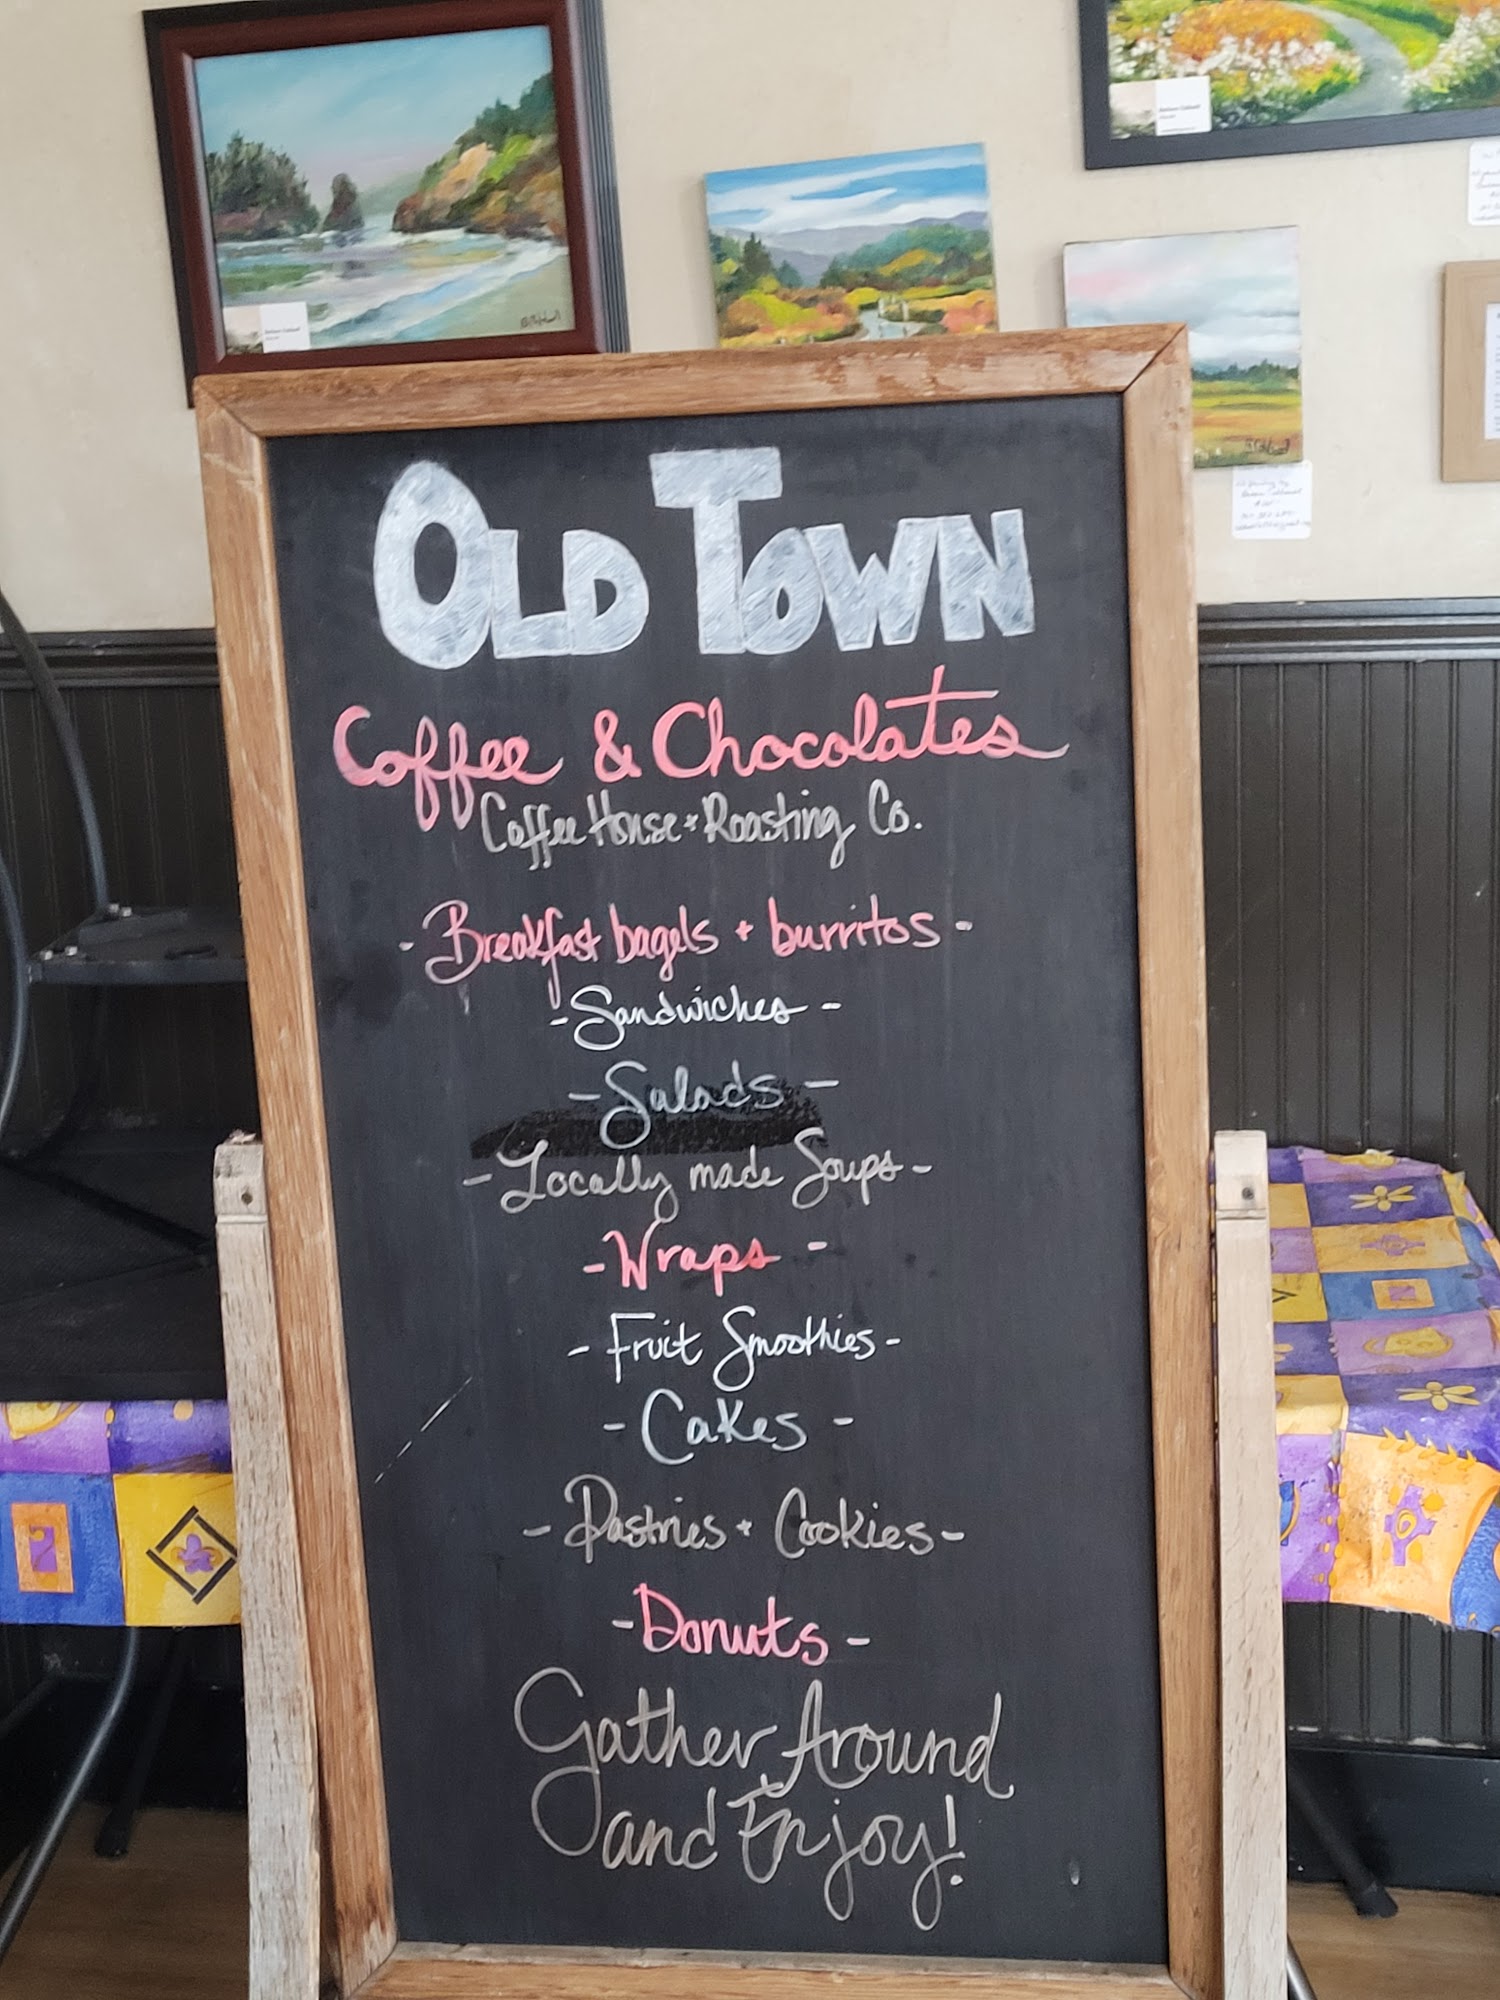 OLD TOWN
Coffee & Chocolates
Coffee House + Roasting Co.
- Breakfast bagels + burritos -
- Sandwiches -
- Salads -
- Locally made Soups -
- Wraps -
- Fruit Smoothies -
- Cakes -
- Pastries + Cookies -
- Donuts -
Gather Around
and Enjoy!